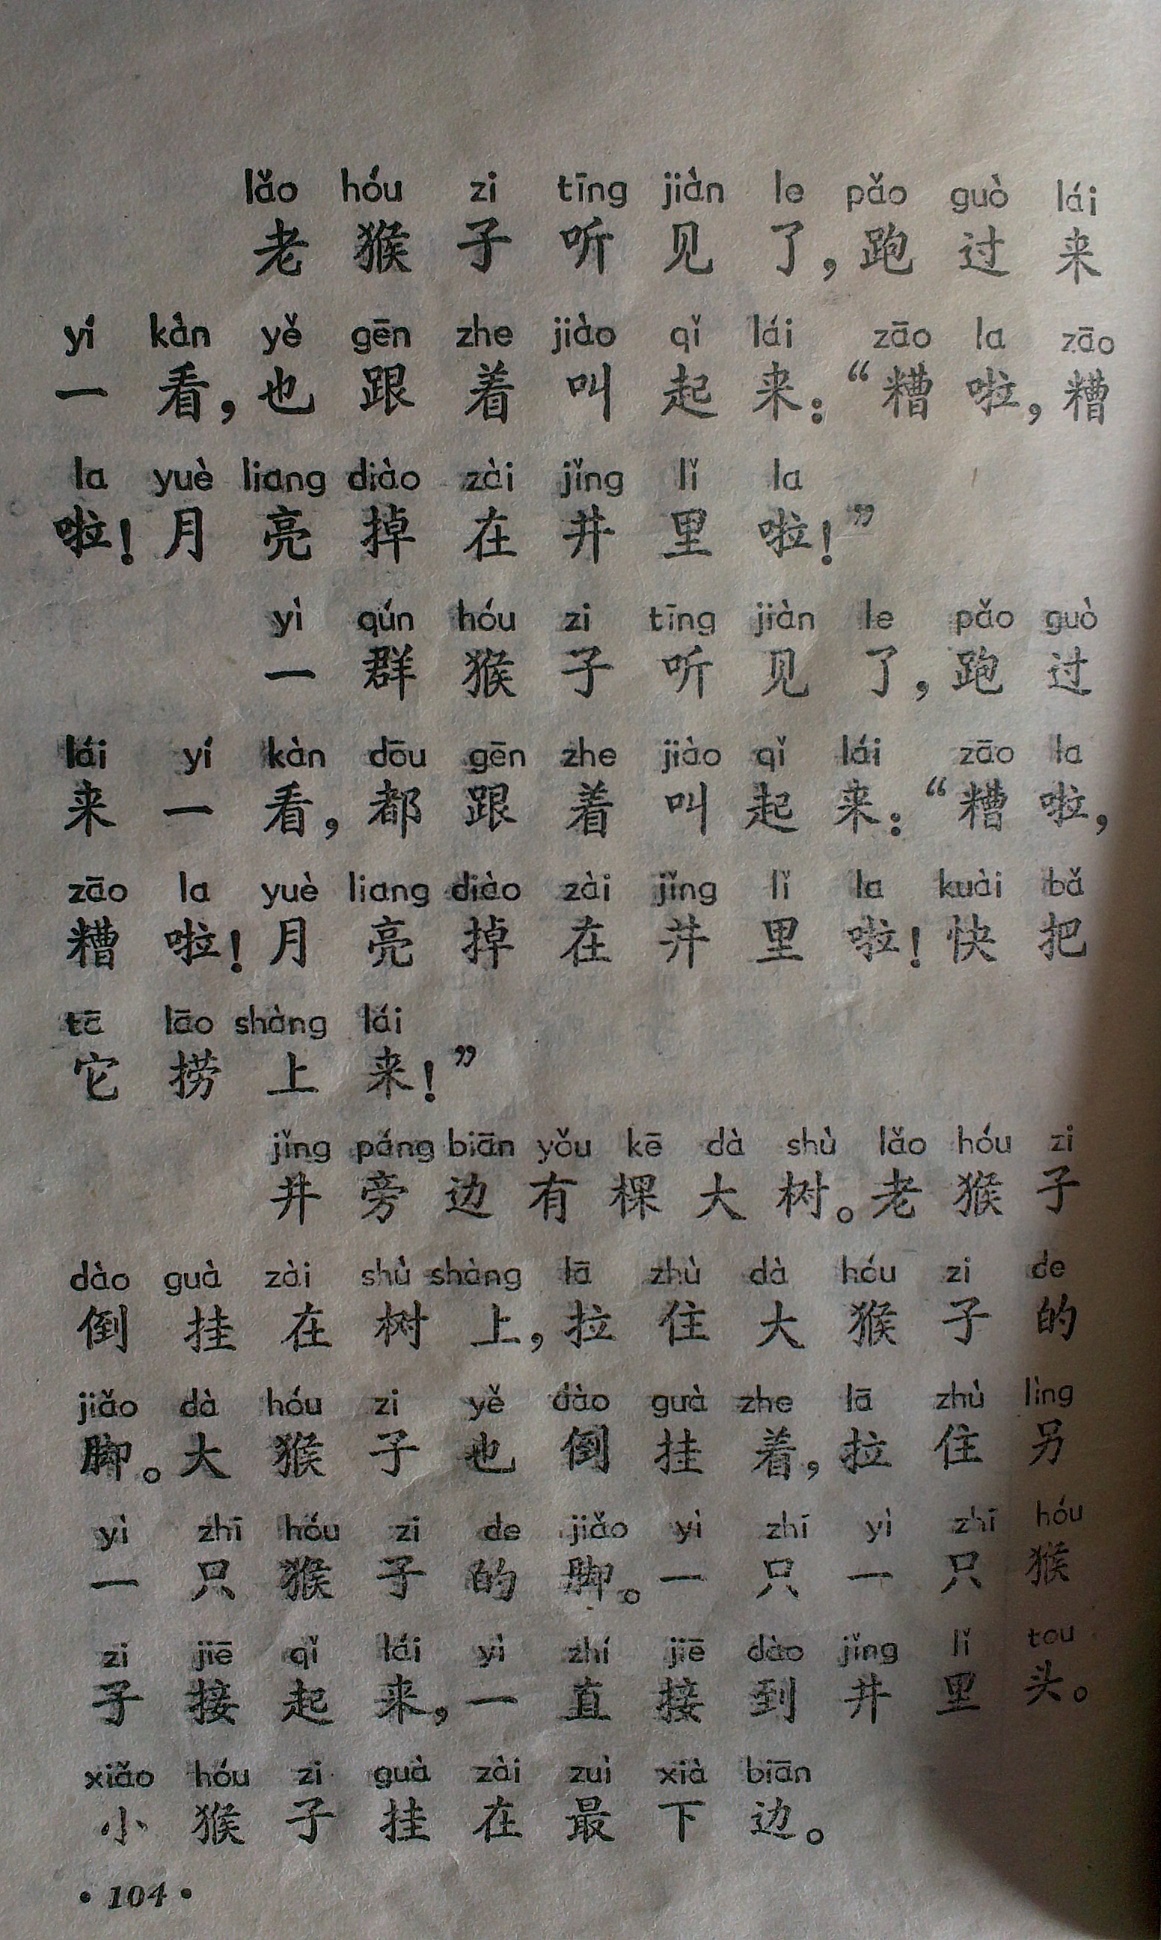 lǎo hóu zi tīng jiàn le pǎo guò lái
老猴子听见了，跑过来
yí kàn yě gēn zhe jiào qǐ lái zāo la zāo
一看，也跟着叫起来：“糟啦，糟
la yuè liang diào zài jǐng lǐ la
啦！月亮掉在井里啦！”
yì qún hóu zi tīng jiàn le pǎo guò
一群猴子听见了，跑过
lái yí kàn dōu gēn zhe jiào qǐ lái zāo la
来一看，都跟着叫起来：“糟啦，
zāo la yuè liang diào zài jǐng lǐ la kuài bǎ
糟啦！月亮掉在井里啦！快把
tā lāo shàng lái
它捞上来！”
jǐng páng biān yǒu kē dà shù lǎo hóu zi
井旁边有棵大树。老猴子
dào guà zài shù shàng lā zhù dà hóu zi de
倒挂在树上，拉住大猴子的
jiǎo dà hóu zi yě dào guà zhe lā zhù lìng
脚。大猴子也倒挂着，拉住另
yì zhī hóu zi de jiǎo yì zhī yì zhī hóu
一只猴子的脚。一只一只猴
zi jiē qǐ lái yì zhí jiē dào jǐng lǐ tou
子接起来，一直接到井里头。
xiǎo hóu zi guà zài zuì xià biān
小猴子挂在最下边。
·104·